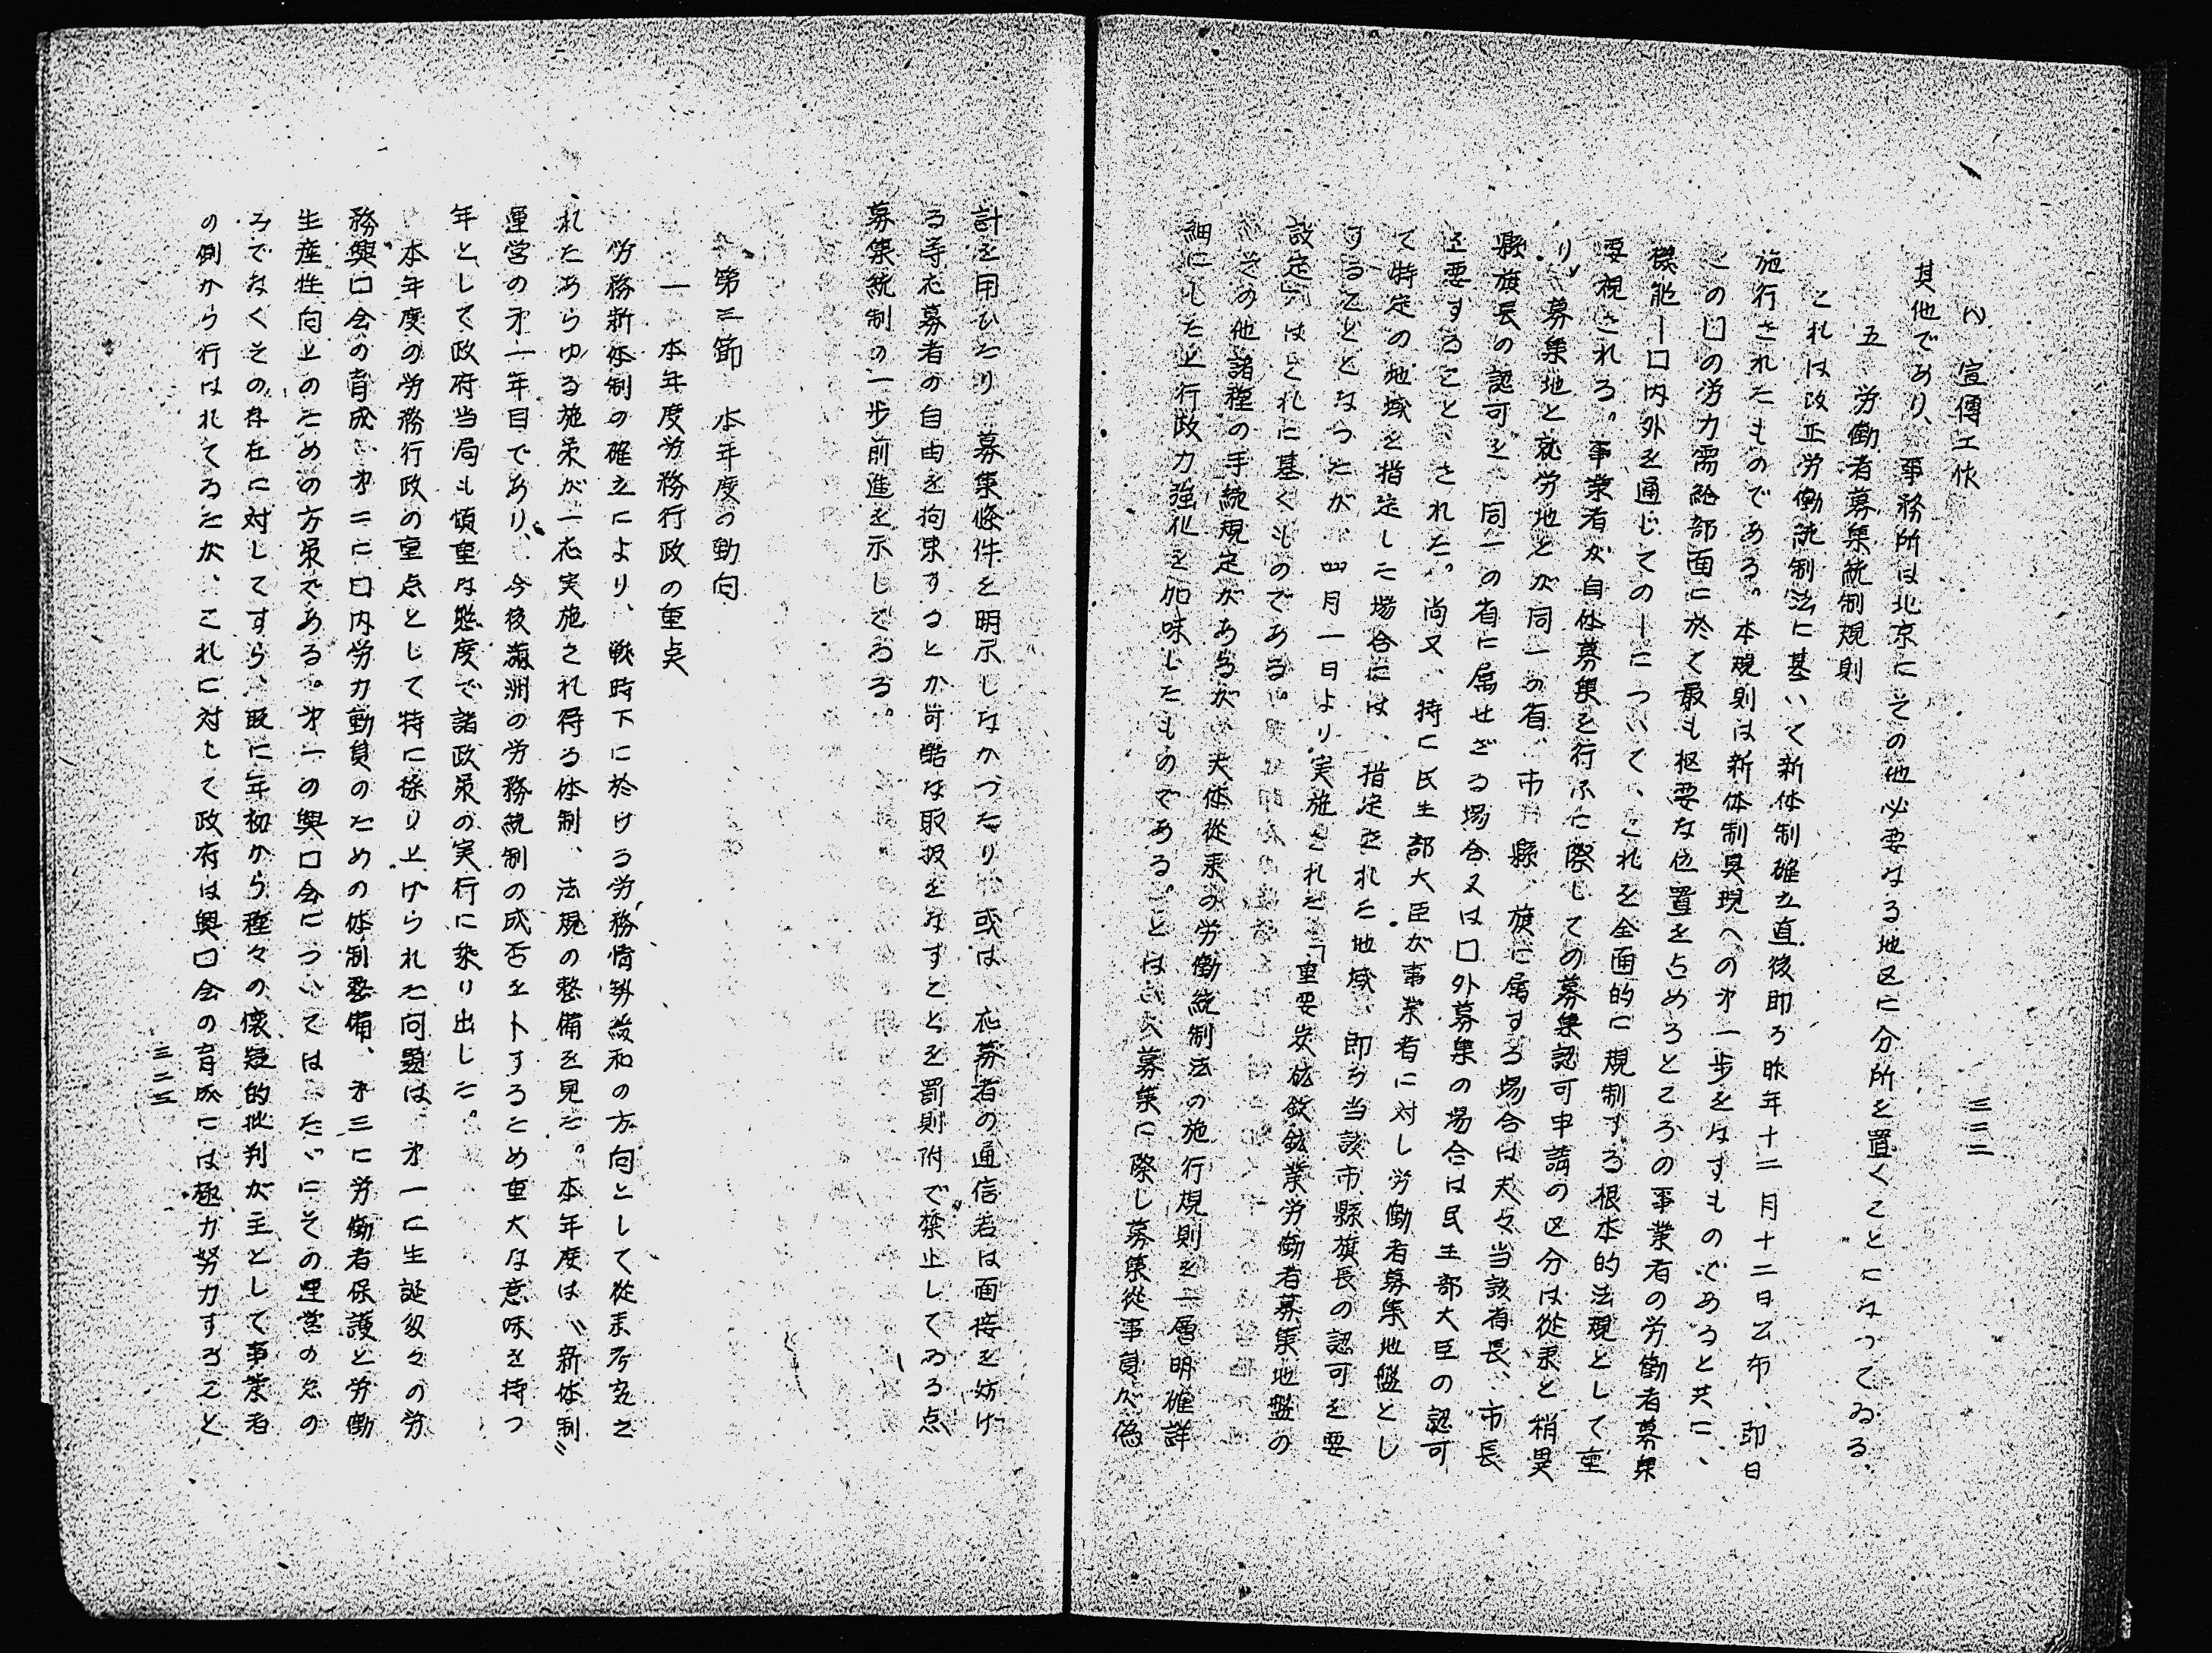 三二二
(八) 宣傳工作
其他であり、事務所は北京にその他必要なる地区に分所を置くことになってゐる。
五 労働者募集統制規則
これは改正労働統制法に基いて新体制確立直後即ち昨年十二月十二日公布、即日
施行されたものである。本規則は新体制具現への第一歩をなすものであると共に、
この口の労力需給部面に於て最も枢要な位置を占めるところの事業者の労働者募集
機能ー口内外を通じてのーについて、これを全面的に規制する根本的法規として重
要視される。事業者が自体募集を行ふに際しての募集認可申請の区分は從来と稍異
り、募集地と就労地とが同一の省、市、縣、旗に属する場合は夫々当該省長、市長
縣旗長の認可を、同一の省に属せざる場合又は口外募集の場合は民生部大臣の認可
を要すること、された。尚又、特に民生部大臣が事業者に対し労働者募集地盤とし
て特定の地域を指定した場合には、指定された地域、即ち当該市縣旗長の認可を要
することとなったが、四月一日より実施された「重要炭砿鉄鉱業労働者募集地盤の
設定」はこれに基くものである。
その他諸種の手続規定があるが、大体從来の労働統制法の施行規則を一層明確詳
細にした上行政力強化を加味したものである。とはいへ募集に際し募集從事員が偽
計を用ひたり、募集條件を明示しなかつたり、或は、応募者の通信若は面接を妨け
る等応募者の自由を拘束することか苛酷な取扱をなすことを罰則附で禁止してゐる点
募集統制の一歩前進を示してゐる。
第三節 本年度の動向
一 本年度労務行政の重点
労務新体制の確立により、戦時下に於ける労務情勢緩和の方向として從来考究さ
れたあらゆる施策が一応実施され得る体制、法規の整備を見た。本年度は〝新体制〟
運営の才一年目であり、今後満洲の労務統制の成否を卜するため重大な意味を持つ
年として政府当局も慎重な態度で諸政策の実行に乗り出した。
本年度の労務行政の重点として特に採り上げられた问題は、才一に生誕匆々の労
務興口会の育成、才二に口内労力動員のための体制整備、才三に労働者保護と労働
生産性向上のための方策である。才一の興口会については、たゞにその運営の为の
みでなくその存在に対してすら、既に年初から種々の懐疑的批判が主として事業者
の側から行はれてゐたが、これに対して政府は興口会の育成には極力努力すること
三二三